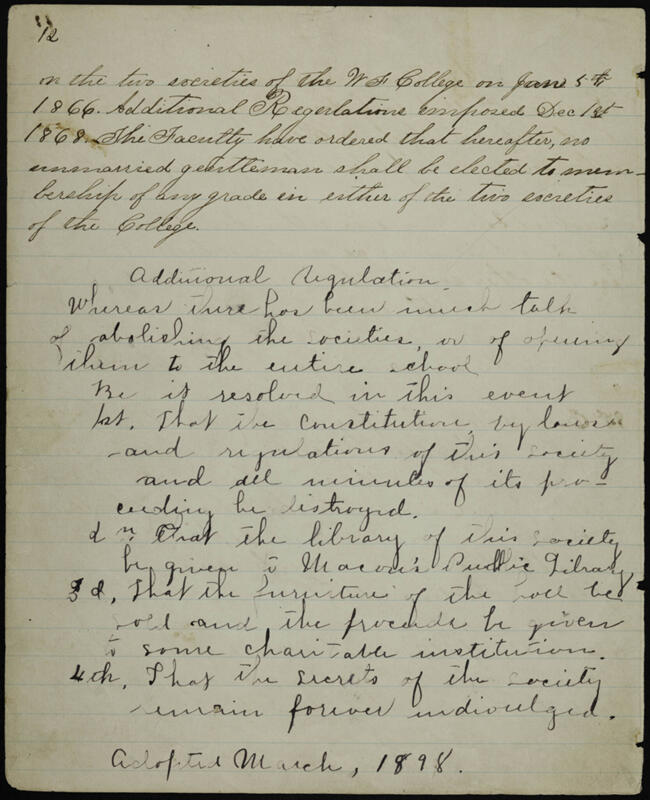 12
on the two societies of the W F College on June 5th
1866. Additional Regerlations imposed Dec 1st
1868. The Faculty have ordered that hereafter, no
unmarried gentleman shall be elected to mem-
bership of any grade in either of the two societies
of the College.
Additional regulation.
Whereas there has been much talk
of abolishing the societies, or of opening
them to the entire school
Be it resolved in this event
1st. That the constitution, by laws
and regulations of this society
and all minutes of its pro-
ceeding be distroyed.
d n. That the library of this society
be given to Macon's Public Library
3d. That the furniture of the hall be
sold and the proceeds be given
to some charitable institution.
4th. That the secrets of the society
remain forever undivulged.
Adopted March, 1898.